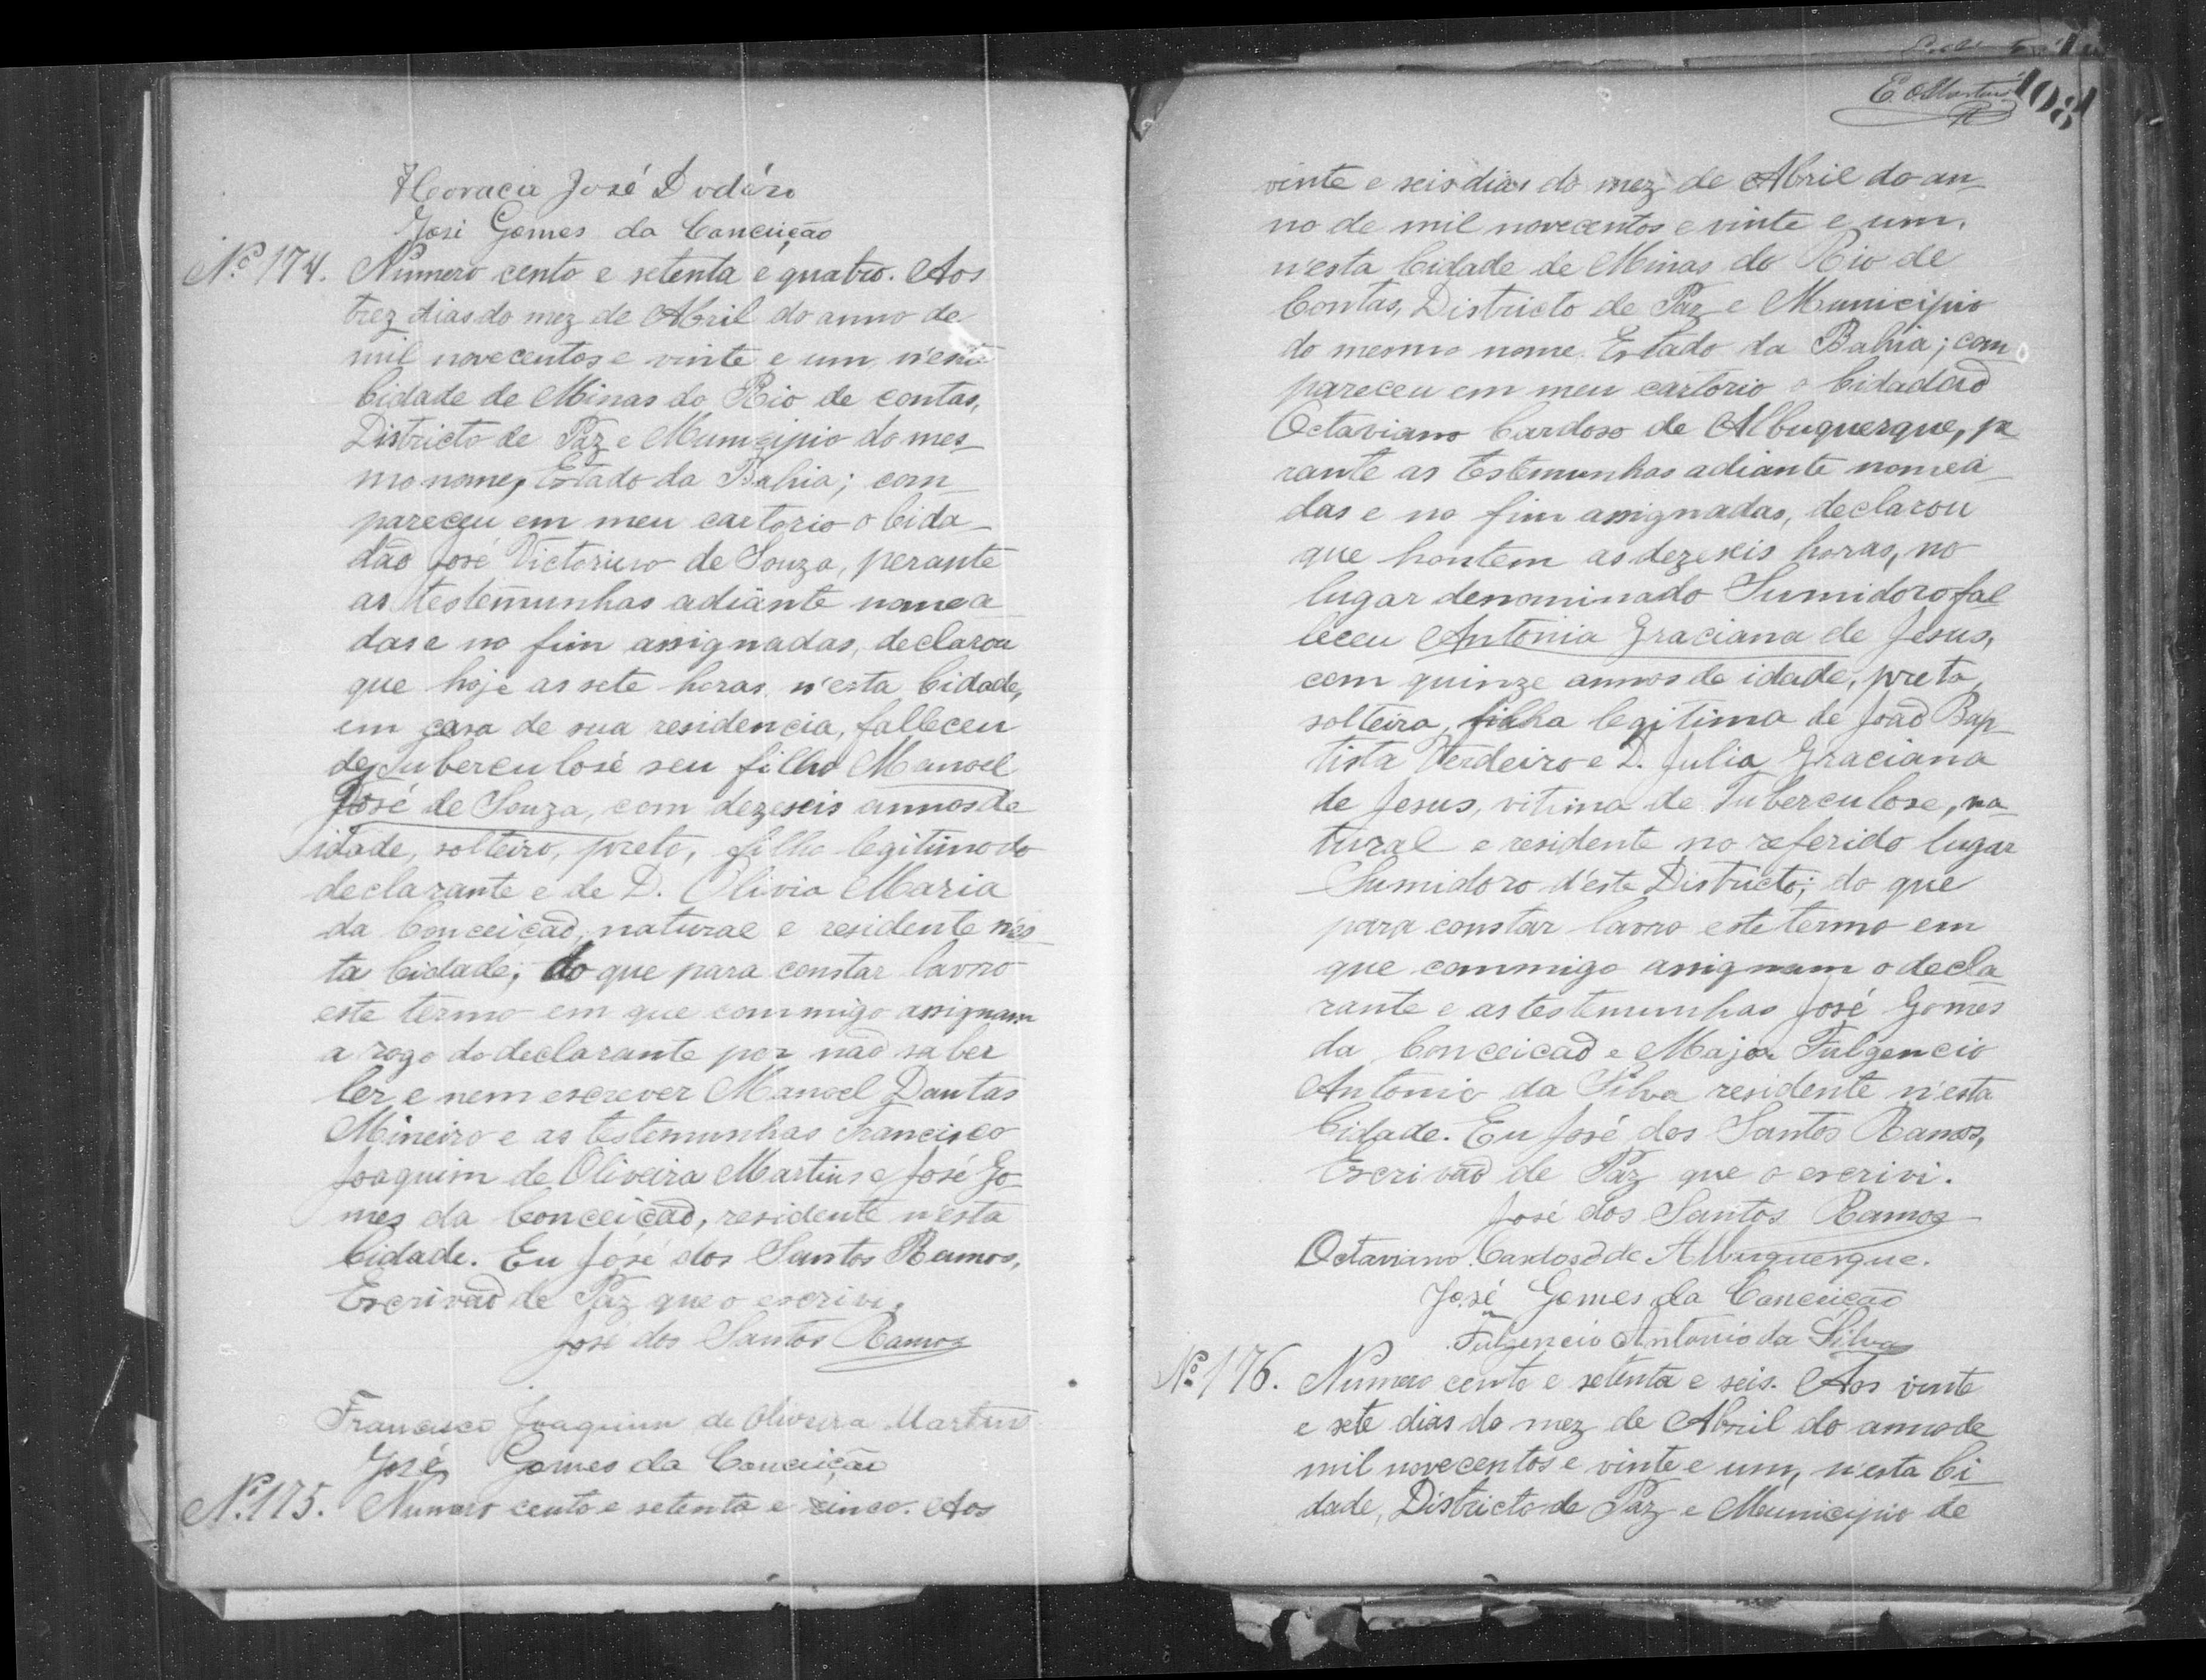 Horacio José Dodéro
José Gomes da Conceição
Nº 174. Numero cento e setenta e quatro. Aos
trez dias do mez de Abril do anno de
mil novecentos e vinte e um, n'esta
Cidade de Minas do Rio de contas,
Districto de Paz e Municipio do mes-
mo nome, Estado da Bahia; com-
pareceu em meu cartorio o Cida-
dão José Victorino de Souza, perante
as testemunhas adiante nomea-
das e no fim assignadas, declarou
que hoje as sete horas, n'esta Cidade,
em casa de sua residencia, falleceu
de tuberculose seu filho Manoel
José de Souza, com dezeseis annos de
idade, solteiro, preto, filho legitimo do
declarante e de D. Olivia Maria
da Conceição, natural e residente n'es-
ta Cidade; do que para constar lavro
este termo em que commigo assignam
a rogo do declarante por não saber
ler e nem escrever Manoel Dantas
Mineiro e as testemunhas Francisco
Joaquim de Oliveira Martins e José Go-
mes da Conceição, residente n'esta
Cidade. Eu José dos Santos Ramos,
Escrivão de Paz que o escrivi.
José dos Santos Ramos
Francisco Joaquim de Oliveira Martins
José Gomes da Conceição
Nº 175. Numero cento e setenta e cinco. Aos
E. O. Martins
108
vinte e seis dias do mez de Abril do an-
no de mil novecentos e vinte e um,
n'esta Cidade de Minas do Rio de
Contas, Districto de Paz e Municipio
do mesmo nome Estado da Bahia; com
pareceu em meu cartorio o Cidadão
Octaviano Cardoso de Albuquerque, pe
rante as testemunhas adiante nomea-
das e no fim assignadas, declarou
que hontem as dezeseis horas, no
lugar denominado Sumidoro fal
leceu Antonia Graciana de Jesus,
com quinze annos de idade, preta,
solteira, filha legitima de João Bap-
tista Verdeiro e D. Julia Graciana
de Jesus, vitima de Tuberculose, na-
tural e residente no referido lugar
Sumidoro d'este Districto; do que
para constar lavro este termo em
que commigo assignam o decla-
rante e as testemunhas José Gomes
da Conceicão e Major Fulgencio
Antonio da Silva residente n'esta
Cidade. Eu José dos Santos Ramos,
Escrivão de Paz que o escrivi.
José dos Santos Ramos
Octaviano Cardoso de Albuquerque.
José Gomes da Conceição
Fulgencio Antonio da Silva
Nº 176. Numero cento e setenta e seis. Aos vinte
e sete dias do mez de Abril do anno de
mil novecentos e vinte e um, n'esta Ci-
dade, Districto de Paz e Municipio de